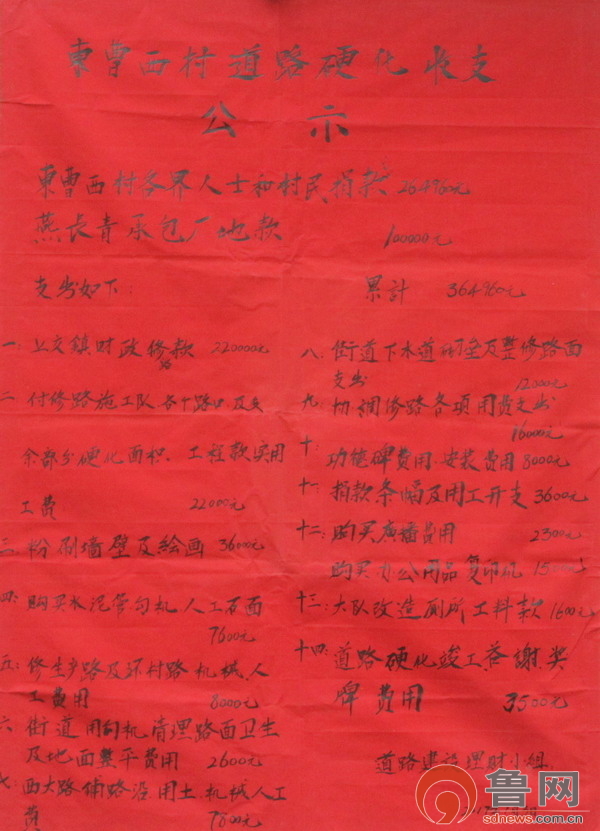 東曹西村道路硬化收支
公示
東曹西村各界人士和村民捐款 264960元
燕长青承包厂地款 100000元
支出如下： 累计 364960元
一、上交镇财政修款 220000元
路
二 付修路施工队各个路口及
余部乡硬化面积、工程款实用
工费 22000元
三 粉刷墙壁及绘画 36000元
四：购买水泥管勾机人工石面
7600元
五：修生产路及环村路机械、人
工费用 8000元
六：街道用勾机清理路面卫生
及地面整平费用 2600元
七：西大路铺路没用土、机械人工
费 7800元
八：街道下水道及整修路面
支出 12000元
九：协调修路各项用费支出
16000元
十、功德碑费用、安装费用8000元
十一：捐款条幅及用工开支 3600元
十二：购买廣播费用 2300元
购买办公用品复印机
十三：大队改造厕所工料款 1600元
十四：道路硬化竣工答谢奖
牌费用 3500元
道路建设理财小组
鲁网
sdnews.com.cn